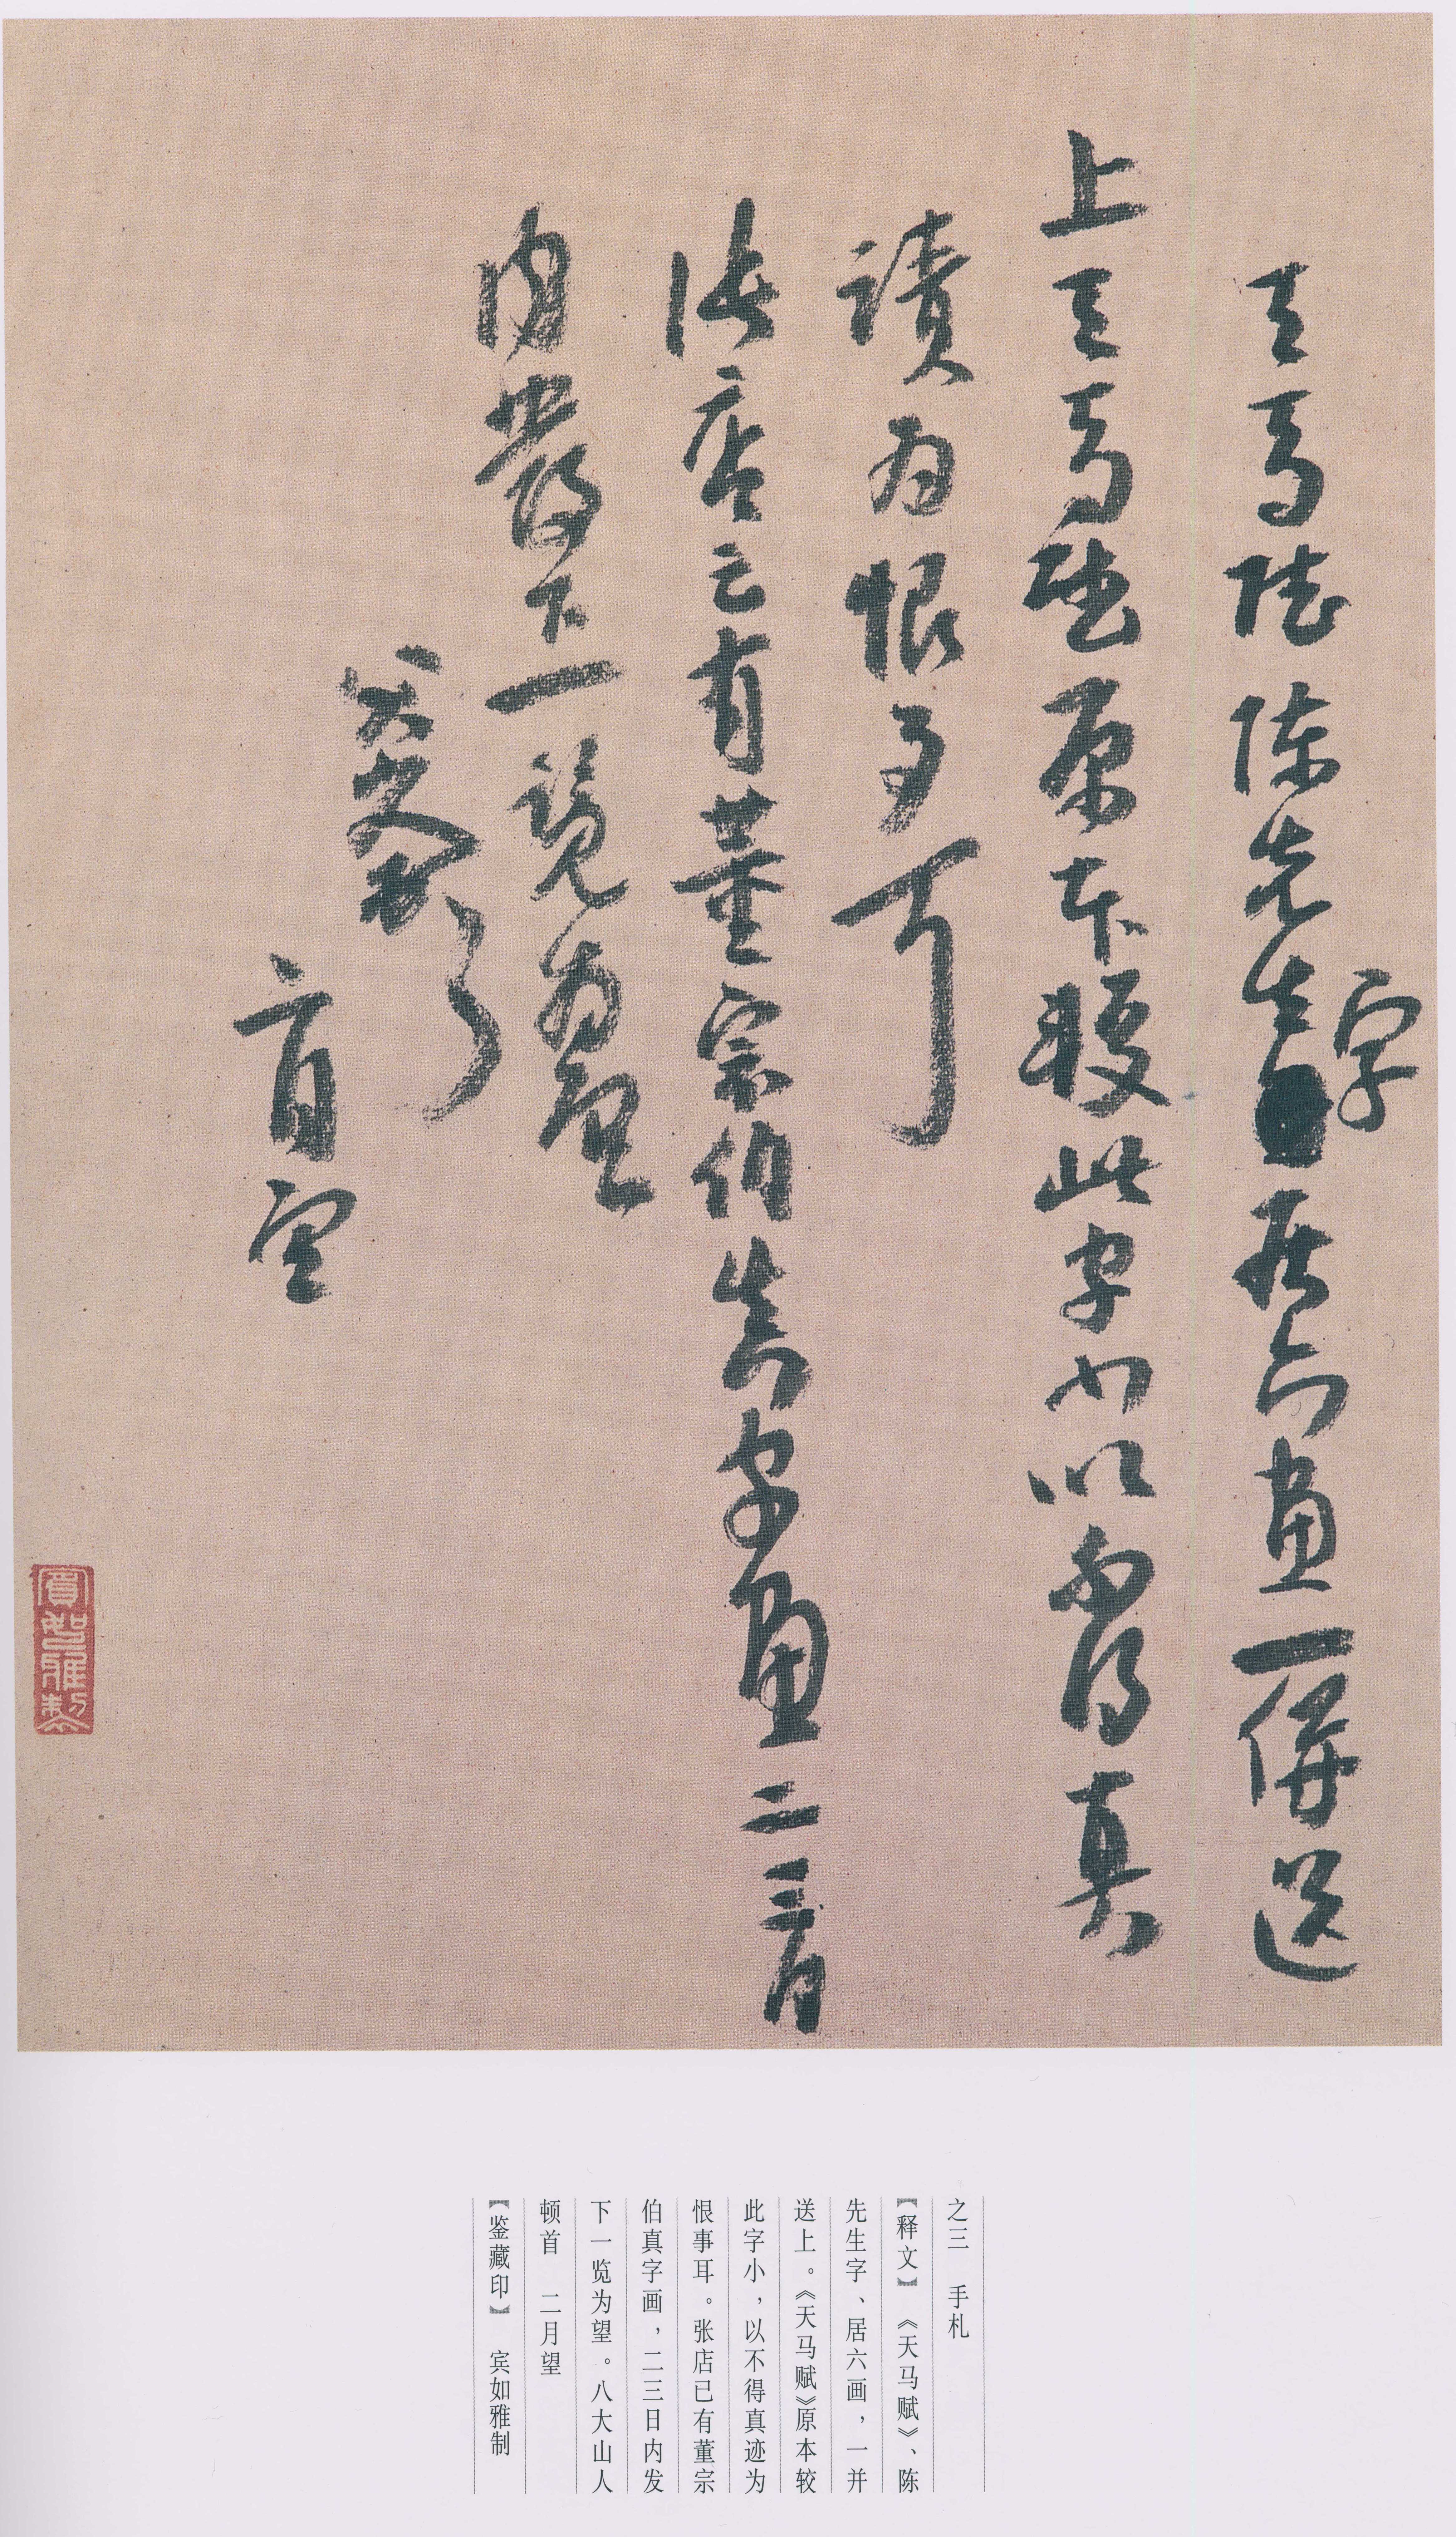 天马赋陈先生字居六画一併送
上天马赋原本较此字小以不得真
蹟为恨事耳
张店已有董宗伯真字画二三日
内发下一览为望
八大山人顿首
二月望
賓如雅製
之三 手札
【释文】 《天马赋》、陈
先生字、居六画，一并
送上。《天马赋》原本较
此字小，以不得真迹为
恨事耳。张店已有董宗
伯真字画，二三日内发
下一览为望。八大山人
顿首 二月望
【鉴藏印】 宾如雅制